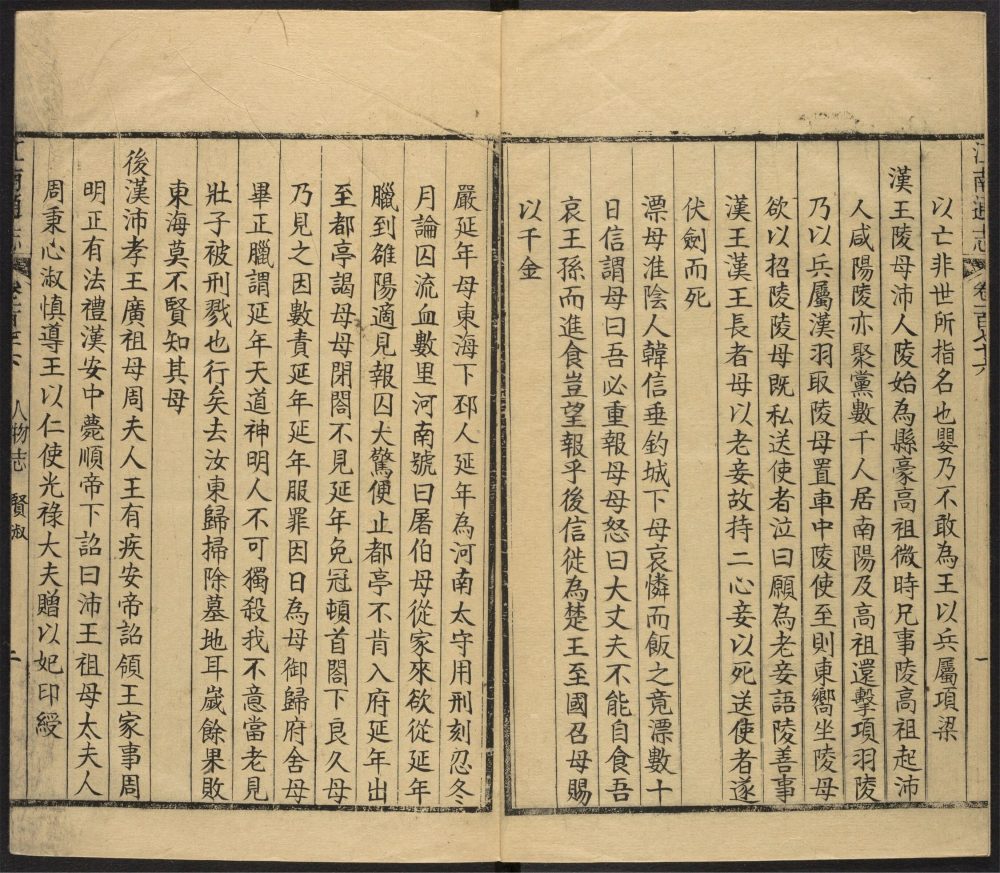 江南通志 卷一百七十六 一
以亡非世所指名也嬰乃不敢為王以兵屬項梁
漢王陵母沛人陵始為縣豪高祖微時兄事陵高祖起沛
人咸陽陵亦聚黨數千人居南陽及高祖還擊項羽陵
乃以兵屬漢羽取陵母置車中陵使至則東嚮坐陵母
欲以招陵陵母既私送使者泣曰願為老妾語陵善事
漢王漢王長者母以老妾故持二心妾以死送使者遂
伏劍而死
漂母淮陰人韓信垂釣城下母哀憐而飯之竟漂數十
日信謂母曰吾必重報母母怒曰大丈夫不能自食吾
哀王孫而進食豈望報乎後信徙為楚王至國召母賜
以千金
嚴延年母東海下邳人延年為河南太守用刑刻忍冬
月論囚流血數里河南號曰屠伯母從家來欲從延年
臘到雒陽適見報囚大驚便止都亭不肯入府延年出
至都亭謁母母閉閤不見延年免冠頓首閤下良久母
乃見之因數責延年延年服罪因日為母御歸府舍母
畢正臘謂延年天道神明人不可獨殺我不意當老見
壯子被刑戮也行矣去汝東歸掃除墓地耳嵗餘果敗
東海莫不賢知其母
後漢沛孝王廣祖母周夫人王有疾安帝詔領王家事周
明正有法禮漢安中薨順帝下詔曰沛王祖母太夫人
周秉心淑慎導王以仁使光祿大夫贈以妃印綬
江南通志 人物志 賢淑 二